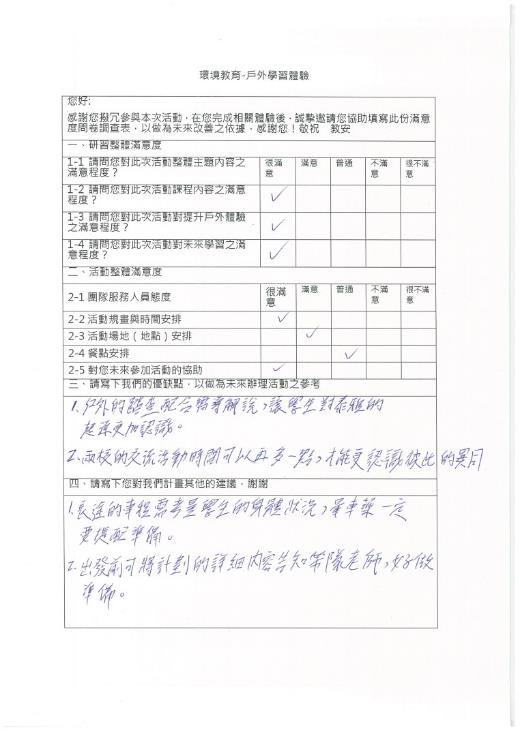 環境教育-戶外學習體驗
您好:
感謝您撥冗參與本次活動，在您完成相關體驗後，誠摯邀請您協助填寫此份滿意
度問卷調查表，以做為未來改善之依據，感謝您！敬祝　教安
一、研習整體滿意度
1-1 請問您對此次活動整體主題內容之滿意程度？ 很滿意 滿意 普通 不滿意 很不滿意
1-2 請問您對此次活動課程內容之滿意程度？ ✓
1-3 請問您對此次活動對提升戶外體驗之滿意程度？ ✓
1-4 請問您對此次活動對未來學習之滿意程度？ ✓
二、活動整體滿意度
2-1 團隊服務人員態度 很滿意 滿意 普通 不滿意 很不滿意
2-2 活動規畫與時間安排 ✓
2-3 活動場地（地點）安排 ✓
2-4 餐點安排 ✓
2-5 對您未來參加活動的協助 ✓
三、請寫下我們的優缺點，以做為未來辦理活動之參考
1.戶外的踏查配合解說，讓學生對泰雅的
起源更加認識。
2.兩校的交流活動時間可以再多一點，才能更認識彼此的異同
四、請寫下您對我們計畫其他的建議，謝謝
1.長途的車程需考量學生的身體狀況，暈車藥一定
要準備。
2.出發前可將計劃的詳細內容告知帶隊老師，好做
準備。